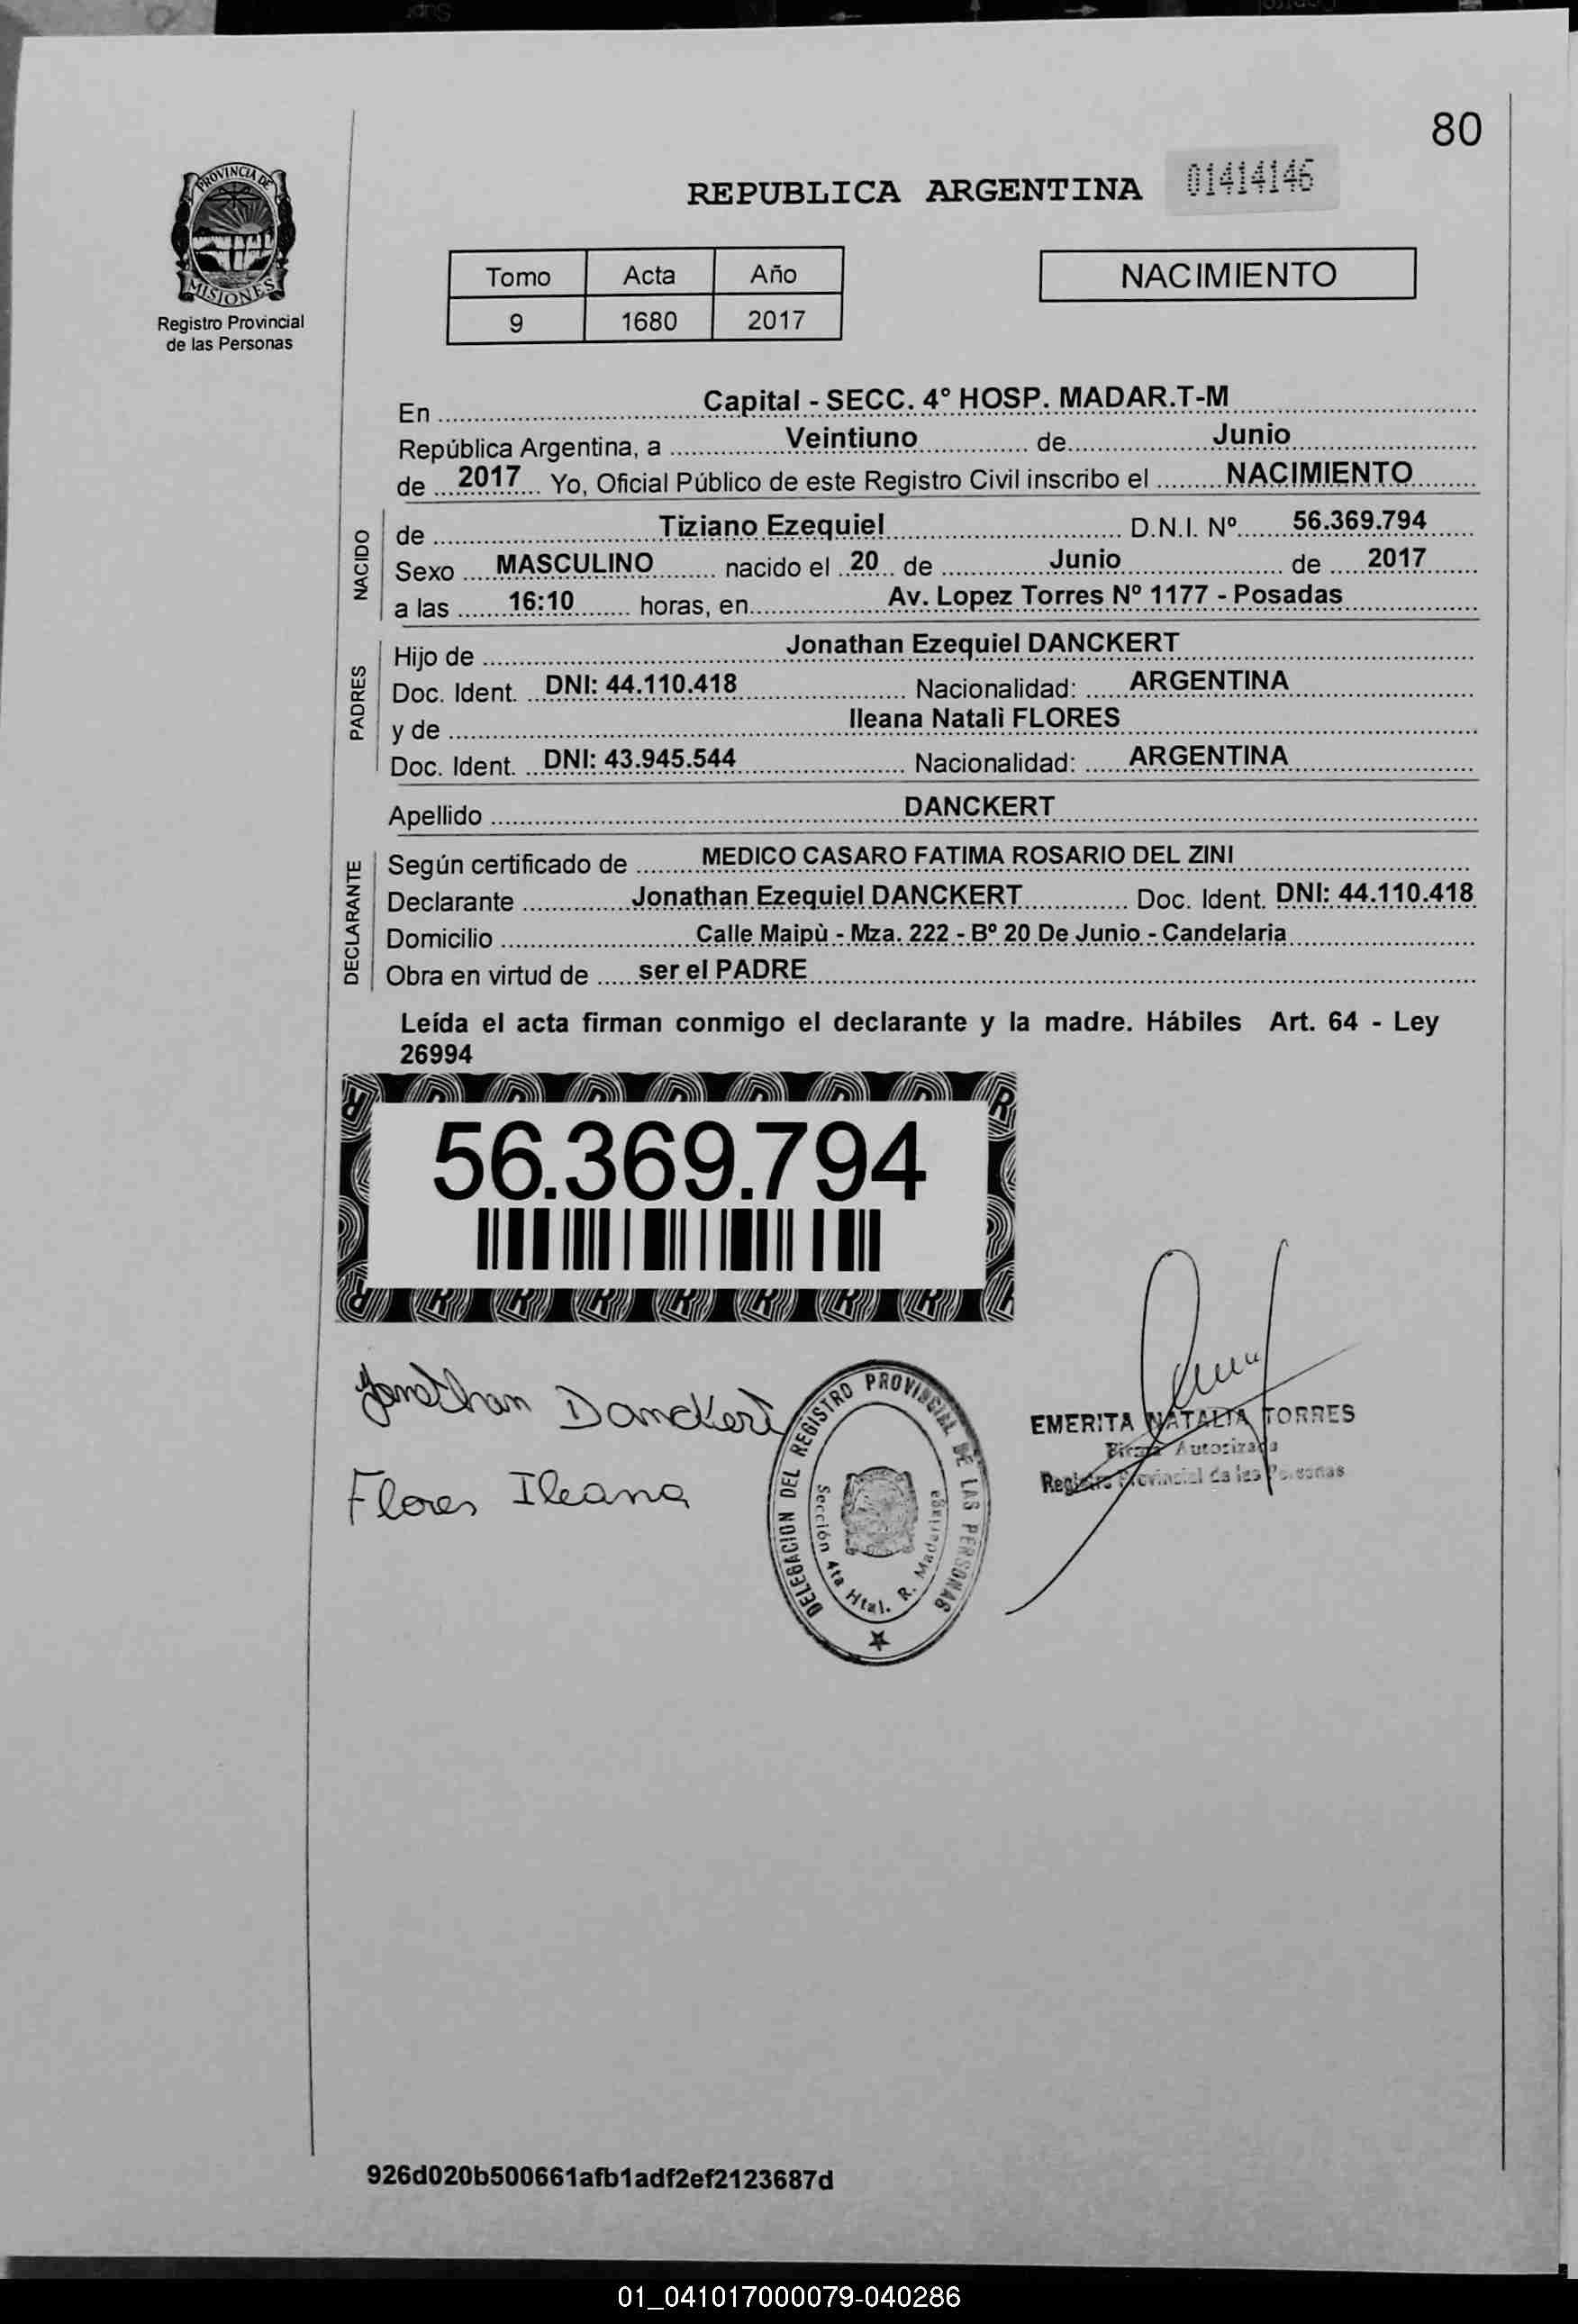 80
PROVINCIA DE
MISIONES
Registro Provincial
de las Personas
REPUBLICA ARGENTINA 01414146
Tomo Acta Año
9 1680 2017
NACIMIENTO
En Capital - SECC. 4º HOSP. MADAR.T-M
República Argentina, a Veintiuno de Junio
de 2017 Yo, Oficial Público de este Registro Civil inscribo el NACIMIENTO
NACIDO
de Tiziano Ezequiel D.N.I. Nº 56.369.794
Sexo MASCULINO nacido el 20 de Junio de 2017
a las 16:10 horas, en Av. Lopez Torres Nº 1177 - Posadas
PADRES
Hijo de Jonathan Ezequiel DANCKERT
Doc. Ident. DNI: 44.110.418 Nacionalidad: ARGENTINA
y de Ileana Natalì FLORES
Doc. Ident. DNI: 43.945.544 Nacionalidad: ARGENTINA
Apellido DANCKERT
DECLARANTE
Según certificado de MEDICO CASARO FATIMA ROSARIO DEL ZINI
Declarante Jonathan Ezequiel DANCKERT Doc. Ident. DNI: 44.110.418
Domicilio Calle Maipù - Mza. 222 - Bº 20 De Junio - Candelaria
Obra en virtud de ser el PADRE
Leída el acta firman conmigo el declarante y la madre. Hábiles Art. 64 - Ley
26994
56.369.794
Jonathan Danckert
Flores Ileana
DELEGACION DEL REGISTRO PROVINCIAL DE LAS PERSONAS
Sección 4ta Htal. R. Madariaga
EMERITA NATALIA TORRES
Firma Autorizada
Registro Provincial de las Personas
926d020b500661afb1adf2ef2123687d
01_041017000079-040286